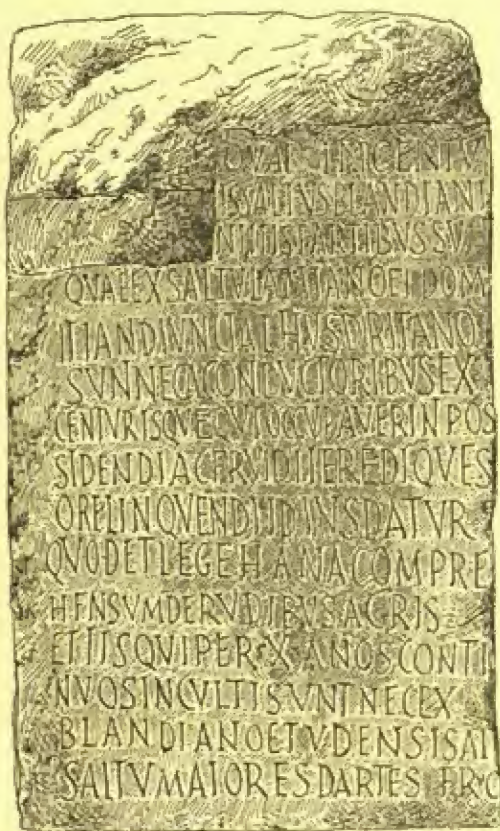 QVAE IN CENTV
IS SALTUS BLANDIANI
N ILLIS PARTIBVS SV
QVAE EX SALTV LAMIANO ET DOM
ITIANO IVNCTA THVSDRITANO
SVN NEC V CONDVCTORIBVS EX
CENTVRISQVE QVI OCCVPAVERIN POS
SIDENDI AC FRVIDI HEREDIQVE S
O RELINQVENDI ID IVS DATVR
QVOD ET LEGE HANA COMPRE
HENSVM DE RVDIBVS AGRIS
ET IIS QVI PER X ANOS CONTI
NVOS INCVLTI SVNT NEC EX
BLANDIANO ET VDENSI SAL
SALTV MAIORES PARTES FRVC